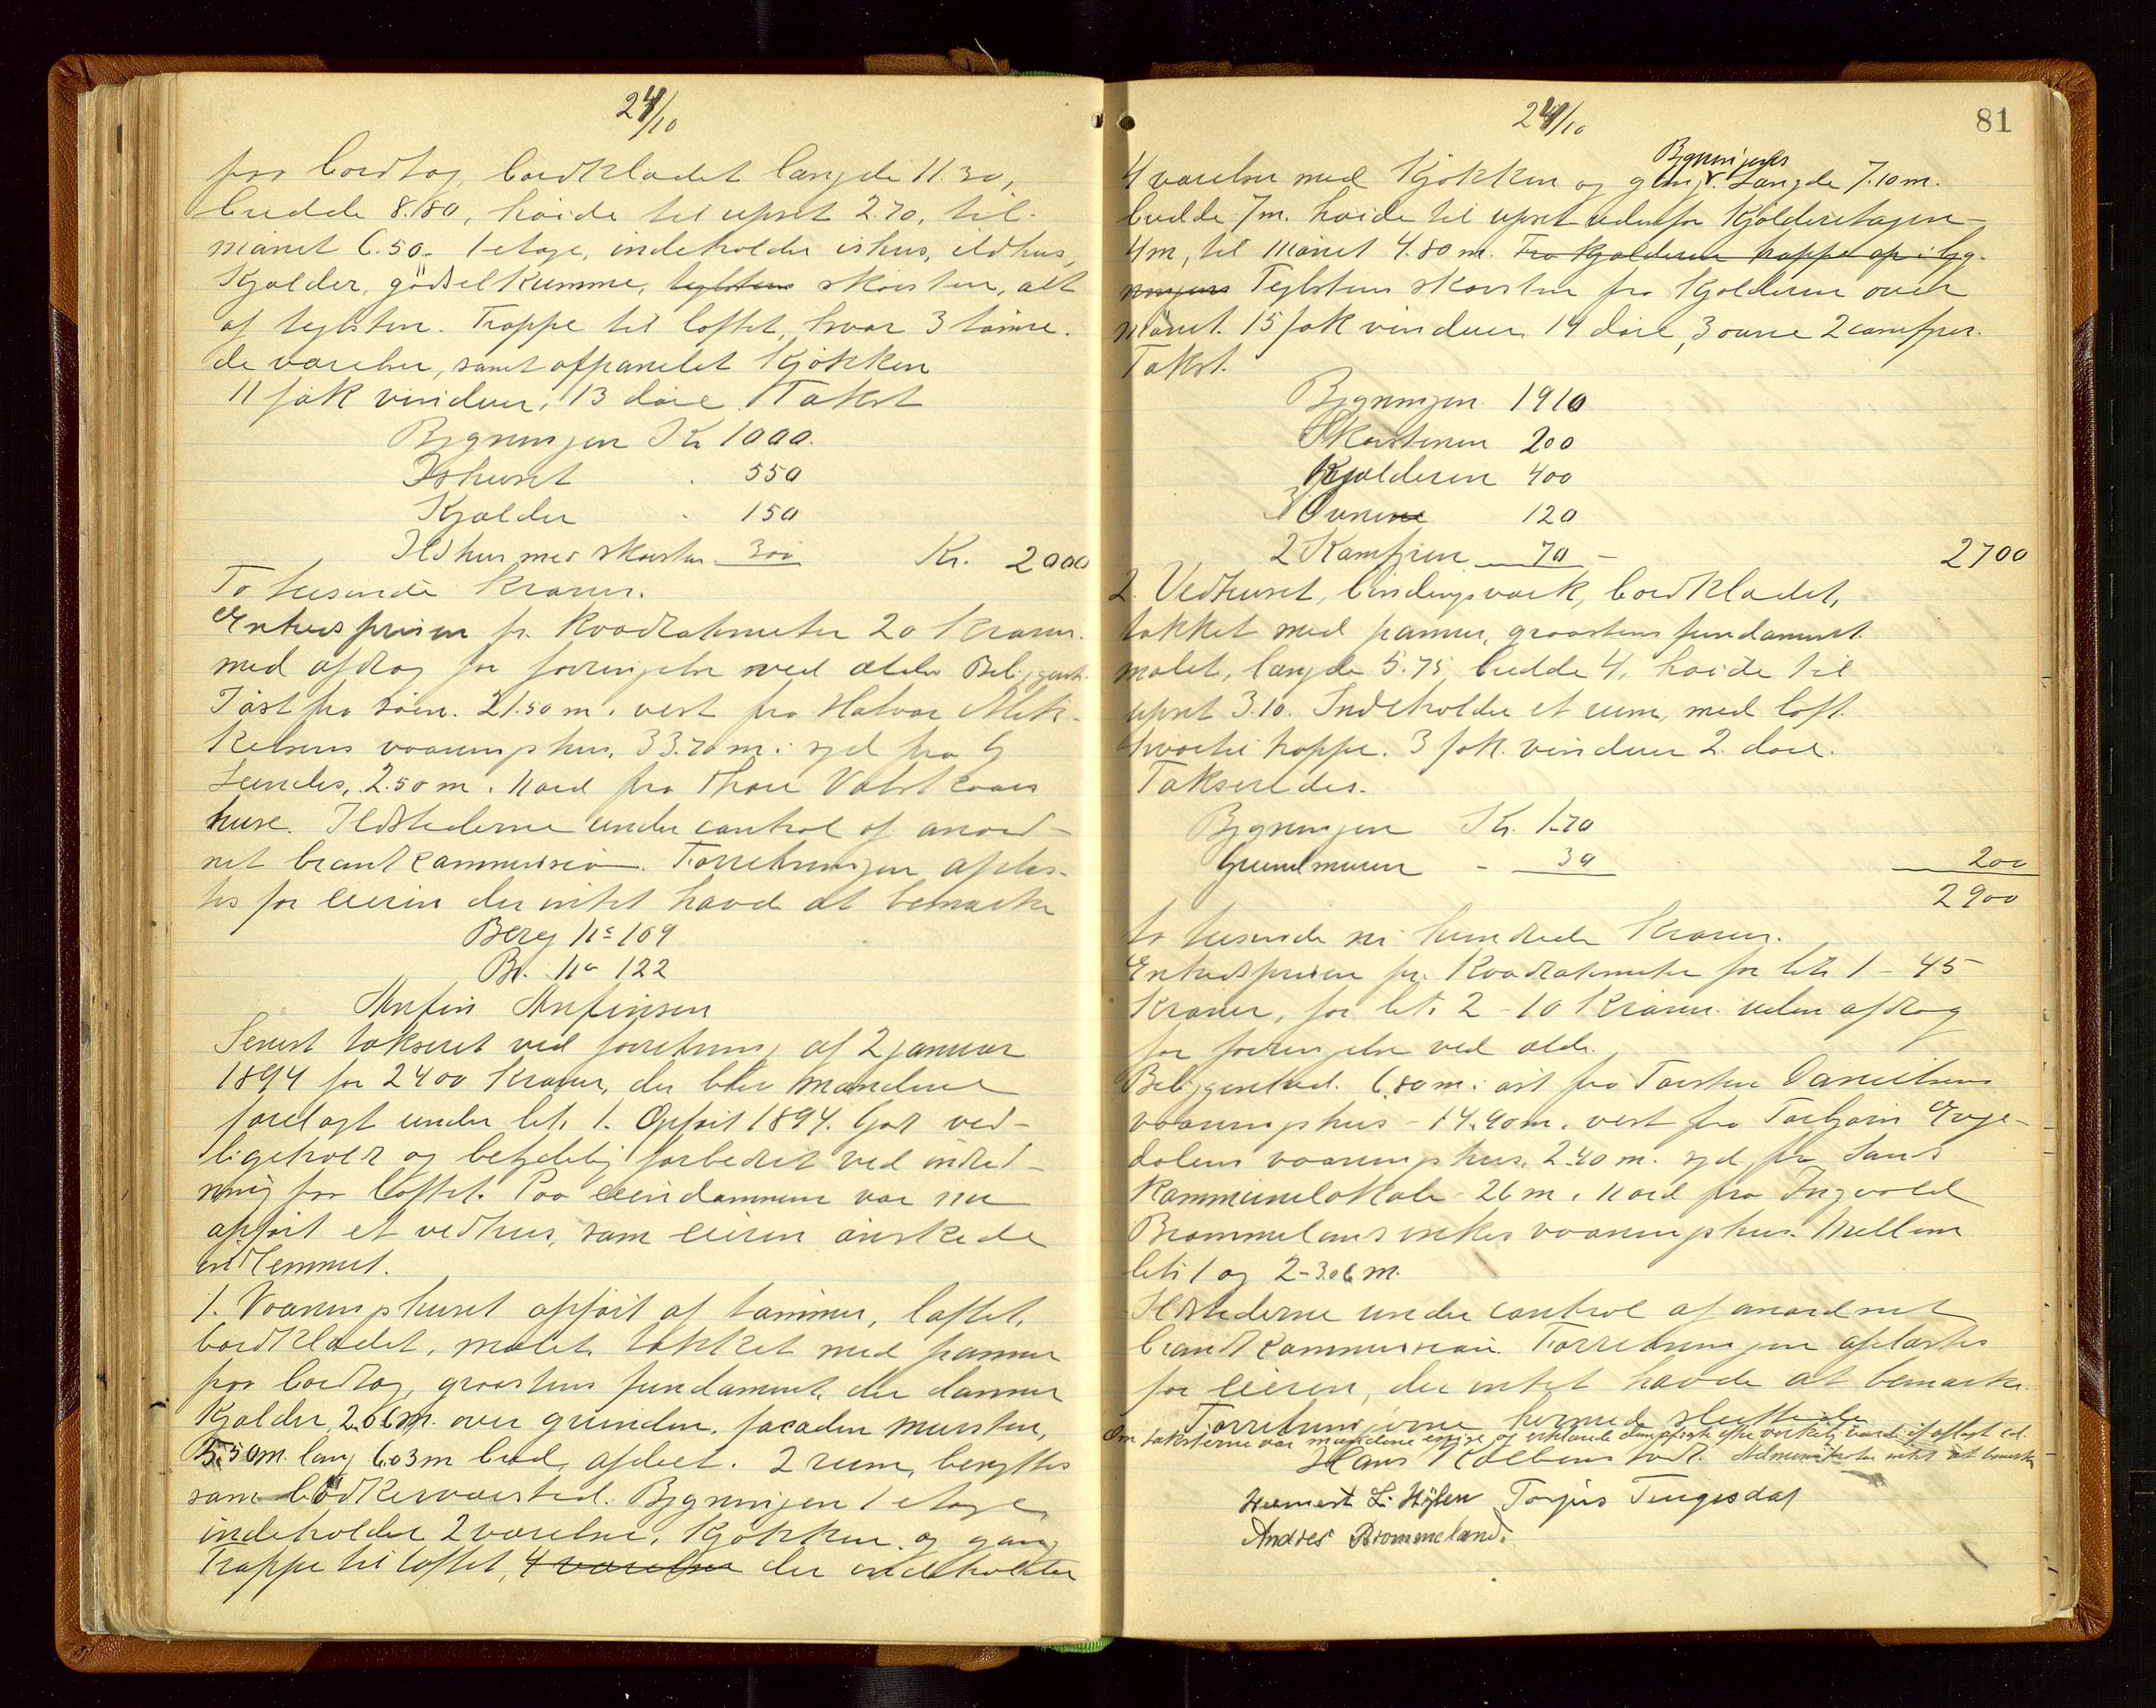 24/10
paa bordtag, bordklædet længde 11.30,
bredde 8.80, høide til upset 2.70, til
mønet 6.50. 1 etage, indeholder ishus, ildhus,
Kjælder, gødselkumme, teglstens skorsten, alt
af teglsten. Trappe til loftet, hvor 3 tømre-
de værelser, samt afpanelet Kjøkken
11 fak vinduer, 13 døre. Takst
Bygningen Kr 1000.
Ishuset . 550
Kjælder . 150
Ildhus med skorsten 300 Kr. 2000
To tusende kroner.
Enhedsprisen pr. kvadratmeter 20 kroner.
med afdrag for forringelse ved ælde. Beliggenh.
I øst fra søen. 21.50 m. vest fra Halvor Mik-
kelsens vaaningshus, 33.70 m. syd fra
Lundes, 2.50 m. nord fra Thore Vatstraaes
huse. Ildstederne under control af anord-
net brandkommission. Forretningen oplæs-
tes for eieren der intet havde at bemærke
Berg No 109
Br. No 122
Arnfin Arnfinsen
Senest takseret ved forretning af 2 januar
1894 for 2400 Kroner, der blev mændene
forelagt under lit. 1. Opført 1894. God ved-
ligeholdt og betydelig forbedret ved indred-
ning paa loftet. Paa eiendommen var nu
opført et vedhus, som eieren ønskede
indlemmet.
1. Vaaningshuset opført af tømmer, loftet,
bordklædet, malet, tækket med panner
paa bordtag, graastens fundament, der danner
Kjælder, 2.06 m. over grunden, facaden mursten,
5.50 m. lang 6.03 m bred, afdelt. 2 rum, benyttes
som bødkerværsted. Bygningen 1 etage
indeholder 2 værelser, Kjøkken og gang
Trappe til loftet, 4 værelser der indeholder
24/10 81
Bygningens
4 værelser med Kjøkken og gang. Længde 7.10 m.
bredde 7 m. høide til upset udenfor Kjælderetagen
4 m, til mønet 4.80 m. Fra Kjælderen trappe op i byg-
ningen Teglstens skorsten fra Kjælderen over
mønet. 15 fak vinduer 14 døre, 3 ovne 2 comfyrer.
Takst.
Bygningen 1910
Skorstenen 200
Kjælderen 400
3 Ovne 120
2 Komfyrer 70 - 2700
2. Vedhuset, bindingsværk, bordklædet,
tækket med panner, graastens fundament
malet, længde 5.75 bredde 4, høide til
upset 3.10. Indeholder et rum, med loft.
hvortil trappe. 3 fak. vinduer 2. døre.
Takseredes.
Bygningen Kr. 170
Grundmuren - 30 200
2900
to tusende ni hundrede Kroner.
Enhedsprisen pr. Kvadratmeter for lit. 1 - 45
Kroner, for lit. 2 - 10 Kroner uden afdrag
for forringelse ved ælde.
Beliggenhed. 6.80 m. øst fra Torsten Danielsens
vaaningshus - 14.90 m. vest fra Torbjørn Eoje-
dalens vaaningshus. 2.40 m. syd fra Sands
Kommunelokale - 26 m. nord fra Ingvald
Brommelands enkes vaaningshus. Mellem
lit. 1 og 2 - 3.06 m.
Ildstederne under control af anordnet
brandkommission. Forretningen oplæstes
for eieren, der intet havde at bemærke.
Forretningerne hermed sluttede
Om taksterne var mændene enige og erklærede dem afsagt efter virkelig værdi
Hans Kolbenstvedt. Administrator intet at bemærke
Helmert L. Hylen Torjus Tengesdal
Andres Brommeland.